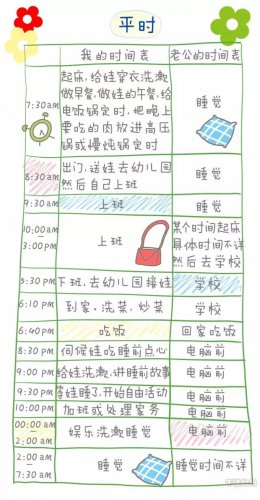 平时
我的时间表 老公的时间表
7:30am
起床，给娃穿衣洗漱
做早餐，做娃的午餐，给
电饭锅定时，把晚上
要吃的肉放进高压
锅或慢炖锅定时
睡觉
8:30am
出门，送娃去幼儿园
然后自己上班
睡觉
9:30am 上班 睡觉
10:00am
3:00pm
上班
某个时间起床
具体时间不详
然后去学校
5:30pm 下班，去幼儿园接娃 学校
6:10pm 到家。洗菜，炒菜 学校
6:40pm 吃饭 回家吃饭
8:30pm 伺候娃吃睡前点心 电脑前
9:00pm 给娃洗漱，讲睡前故事 电脑前
9:30pm 等娃睡了，开始自由活动 电脑前
10:00pm 加班或处理家务 电脑前
00:00am
2:00am
娱乐洗漱睡觉 电脑前
2:00am
7:30am
睡觉 睡觉时间不详